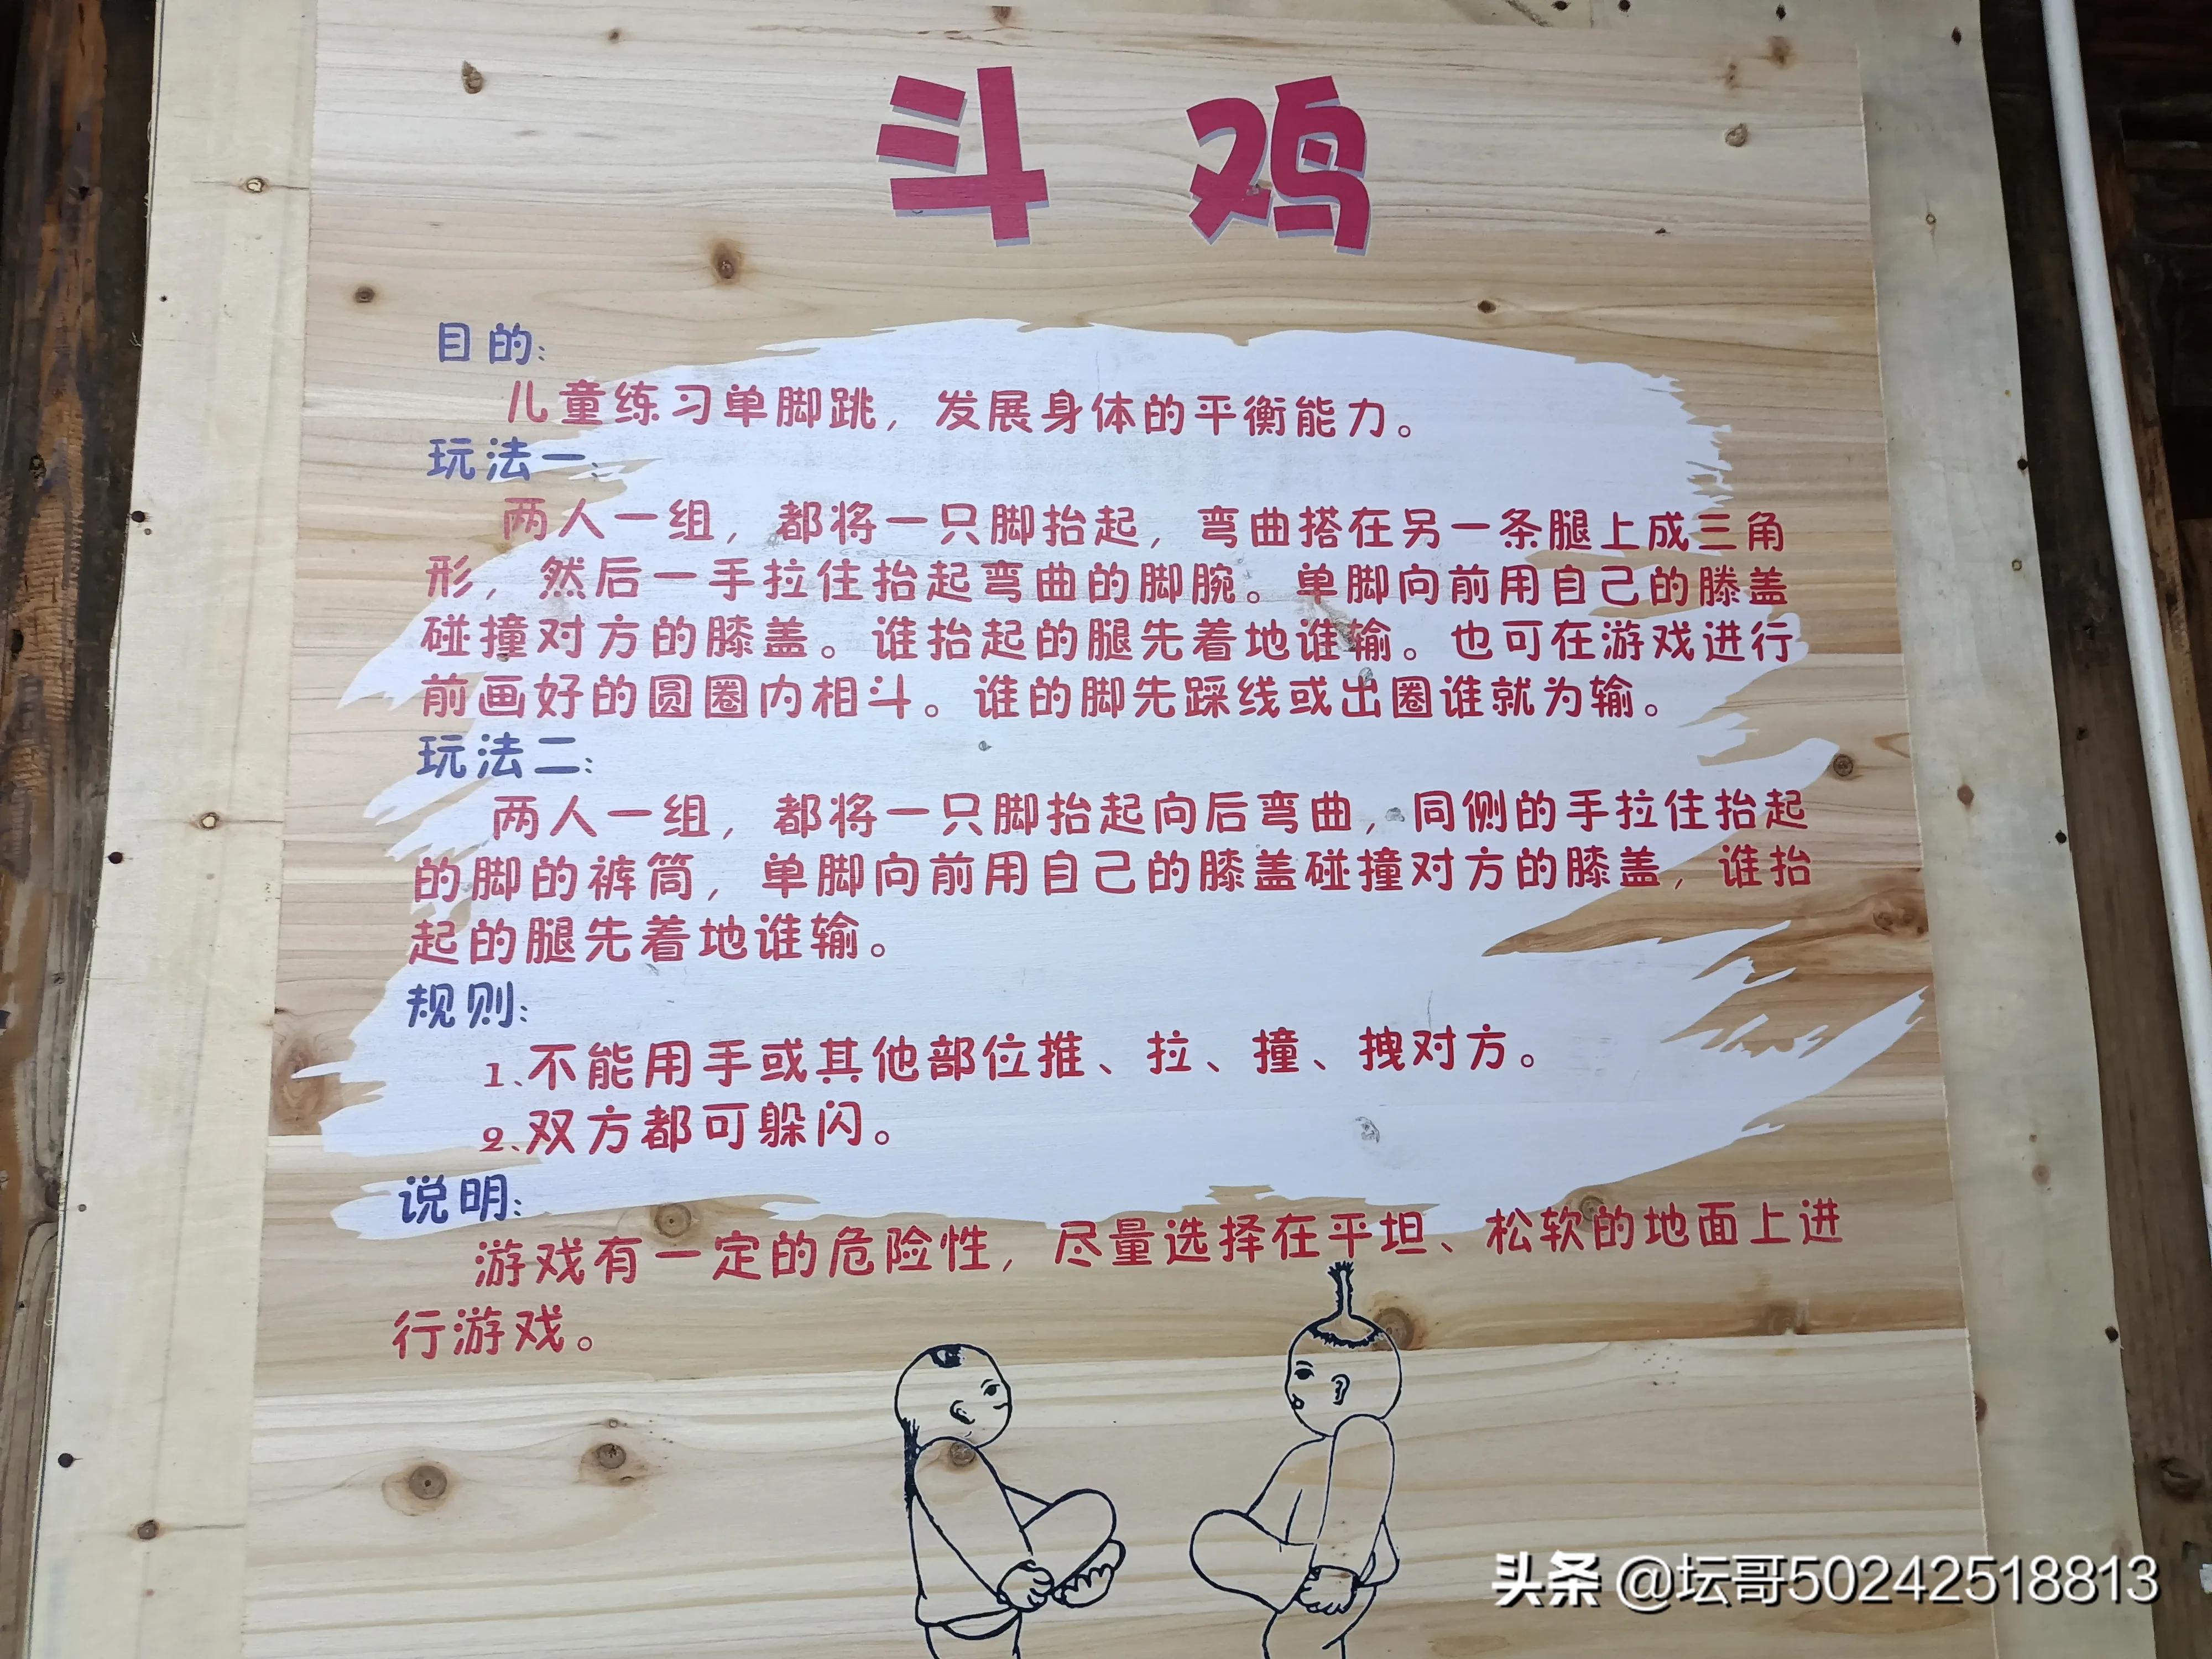 斗鸡
目的:
儿童练习单脚跳，发展身体的平衡能力。
玩法一:
两人一组，都将一只脚抬起，弯曲搭在另一条腿上成三角
形，然后一手拉住抬起弯曲的脚腕。单脚向前用自己的膝盖
碰撞对方的膝盖。谁抬起的腿先着地谁输。也可在游戏进行
前画好的圆圈内相斗。谁的脚先踩线或出圈谁就为输。
玩法二:
两人一组，都将一只脚抬起向后弯曲，同侧的手拉住抬起
的脚的裤筒，单脚向前用自己的膝盖碰撞对方的膝盖，谁抬
起的腿先着地谁输。
规则:
1、不能用手或其他部位推、拉、撞、拽对方。
2、双方都可躲闪。
说明:
游戏有一定的危险性，尽量选择在平坦、松软的地面上进
行游戏。
头条 @坛哥50242518813